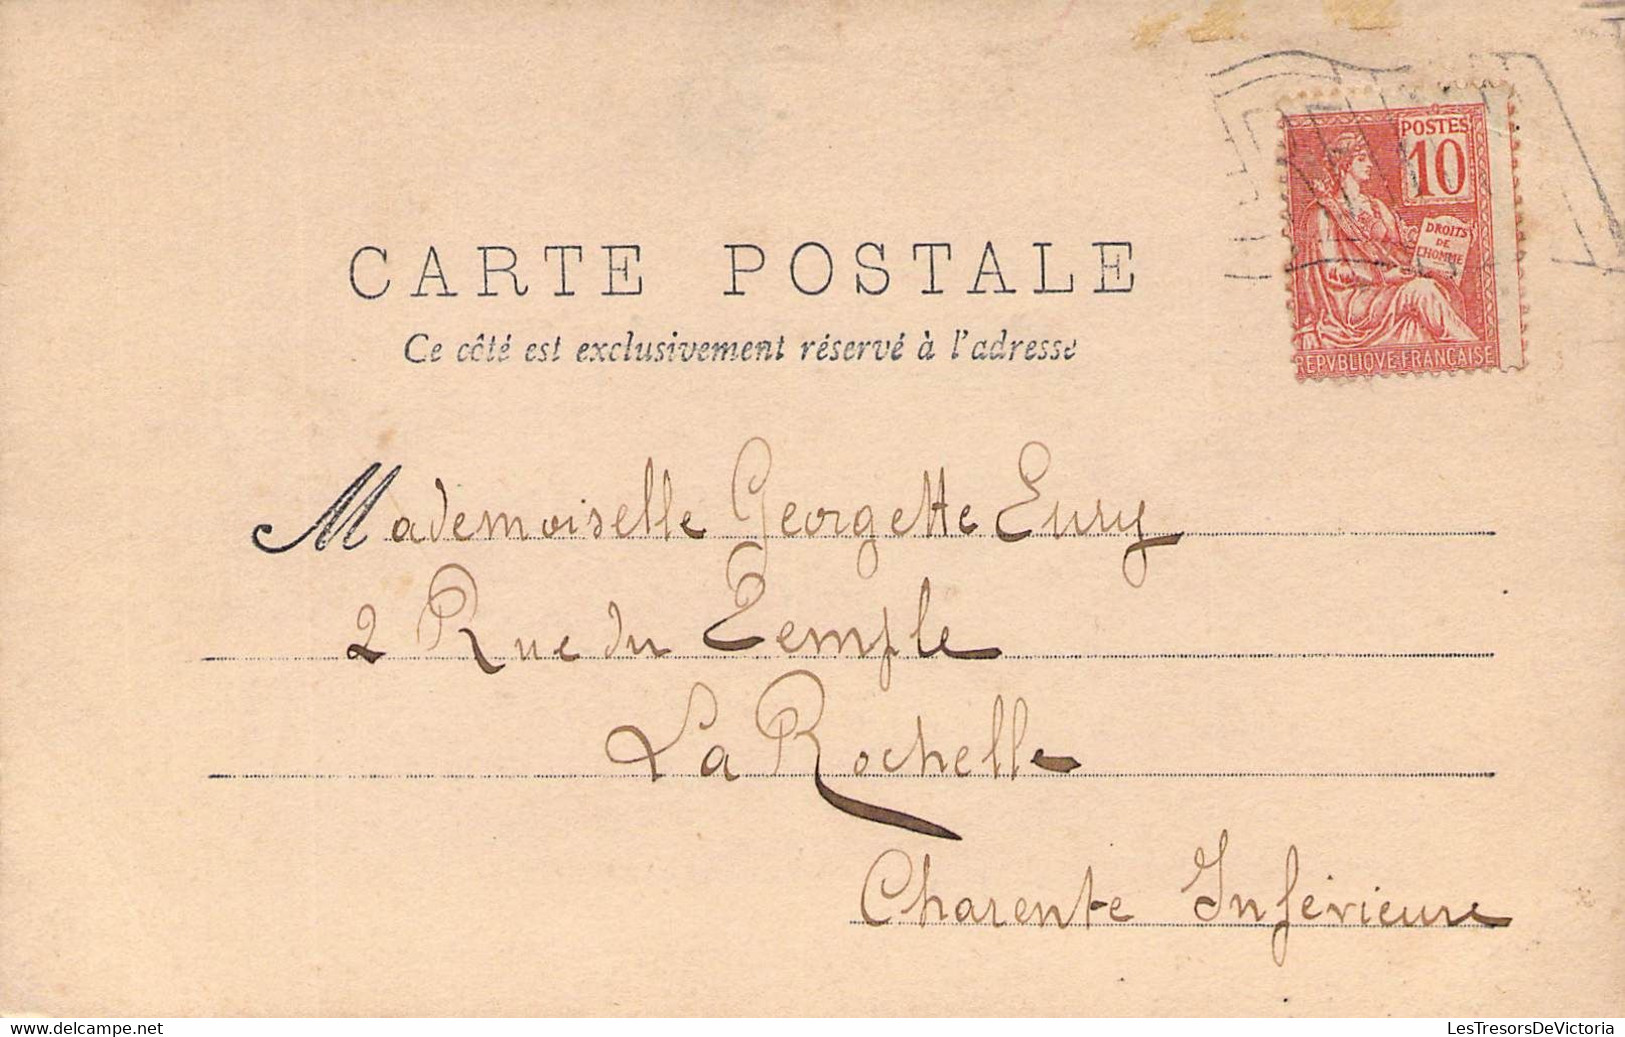 CARTE POSTALE
Ce côté est exclusivement réservé à l'adresse
POSTES
10
DROITS
DE
L'HOMME
REPVBLIQVE FRANÇAISE
Mademoiselle Georgette Eury
2 Rue du Temple
La Rochelle
Charente Inférieure
www.delcampe.net
LesTresorsDeVictoria